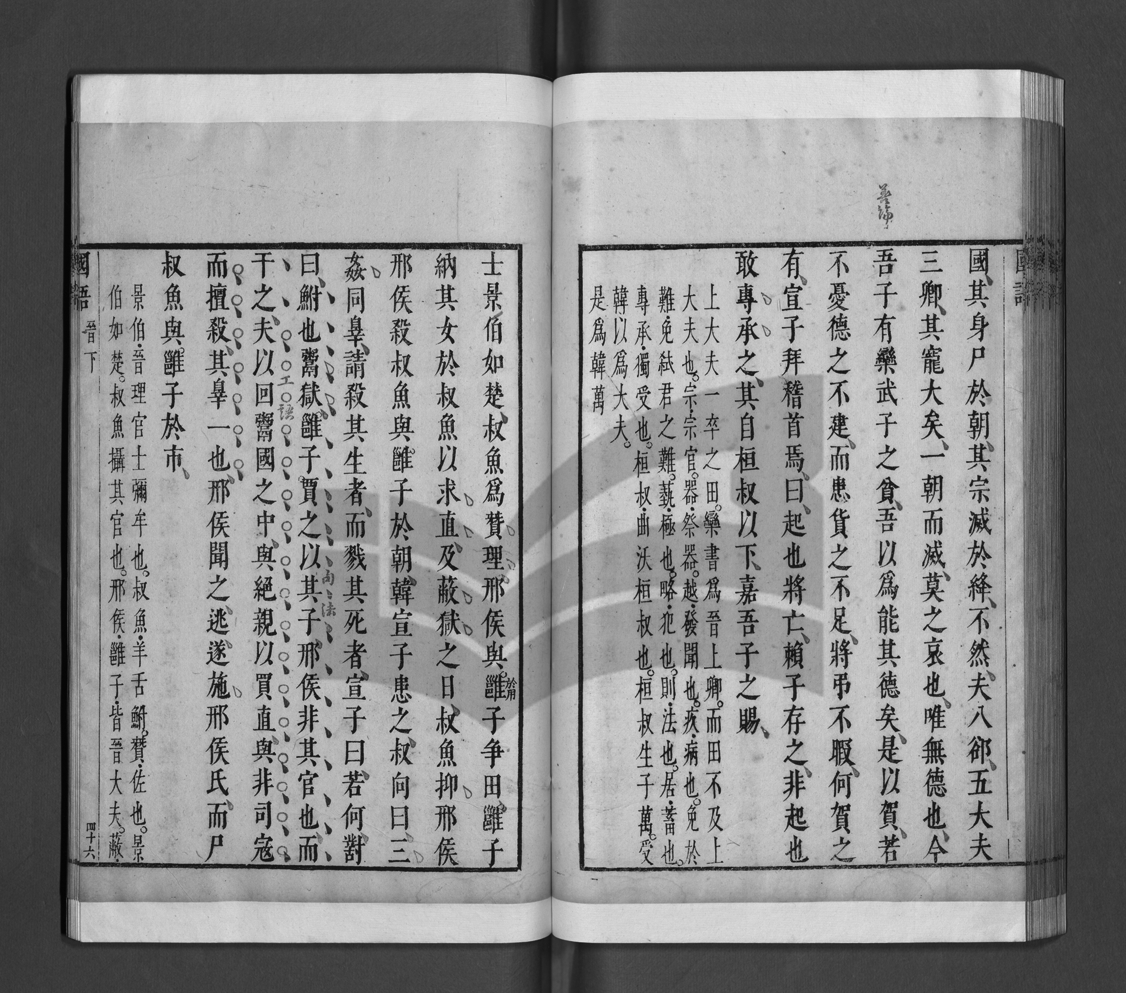 國其身尸於朝其宗滅於絳不然夫八郤五大夫
三卿其寵大矣一朝而滅莫之哀也唯無德也今
吾子有欒武子之貧吾以爲能其德矣是以賀若
不憂德之不建而患貨之不足將弔不暇何賀之
有宣子拜稽首焉曰起也將亡賴子存之非起也
敢專承之其自桓叔以下嘉吾子之賜
上大夫一卒之田欒書爲晉上卿而田不及上
大夫也宗宗官器祭器越發聞也疚病也免於
難免弒君之難蓺極也略犯也則法也居蓄也
專承獨受也桓叔曲沃桓叔也桓叔生子萬受
韓以爲大夫
是爲韓萬
士景伯如楚叔魚爲贊理邢侯與雝子争田雝子
於用
納其女於叔魚以求直及蔽獄之日叔魚抑邢侯
邢侯殺叔魚與雝子於朝韓宣子患之叔向曰三
姦同辠請殺其生者而戮其死者宣子曰若何對
曰鮒也鬻獄雝子賈之以其子邢侯非其官也而
干之夫以回鬻國之中與絕親以買直與非司寇
而擅殺其辠一也邢侯聞之逃遂施邢侯氏而尸
叔魚與雝子於市
景伯晉理官士彌牟也叔魚羊舌鮒贊佐也景
伯如楚叔魚攝其官也邢侯雝子皆晉大夫蔽
國語
晉下
四十六